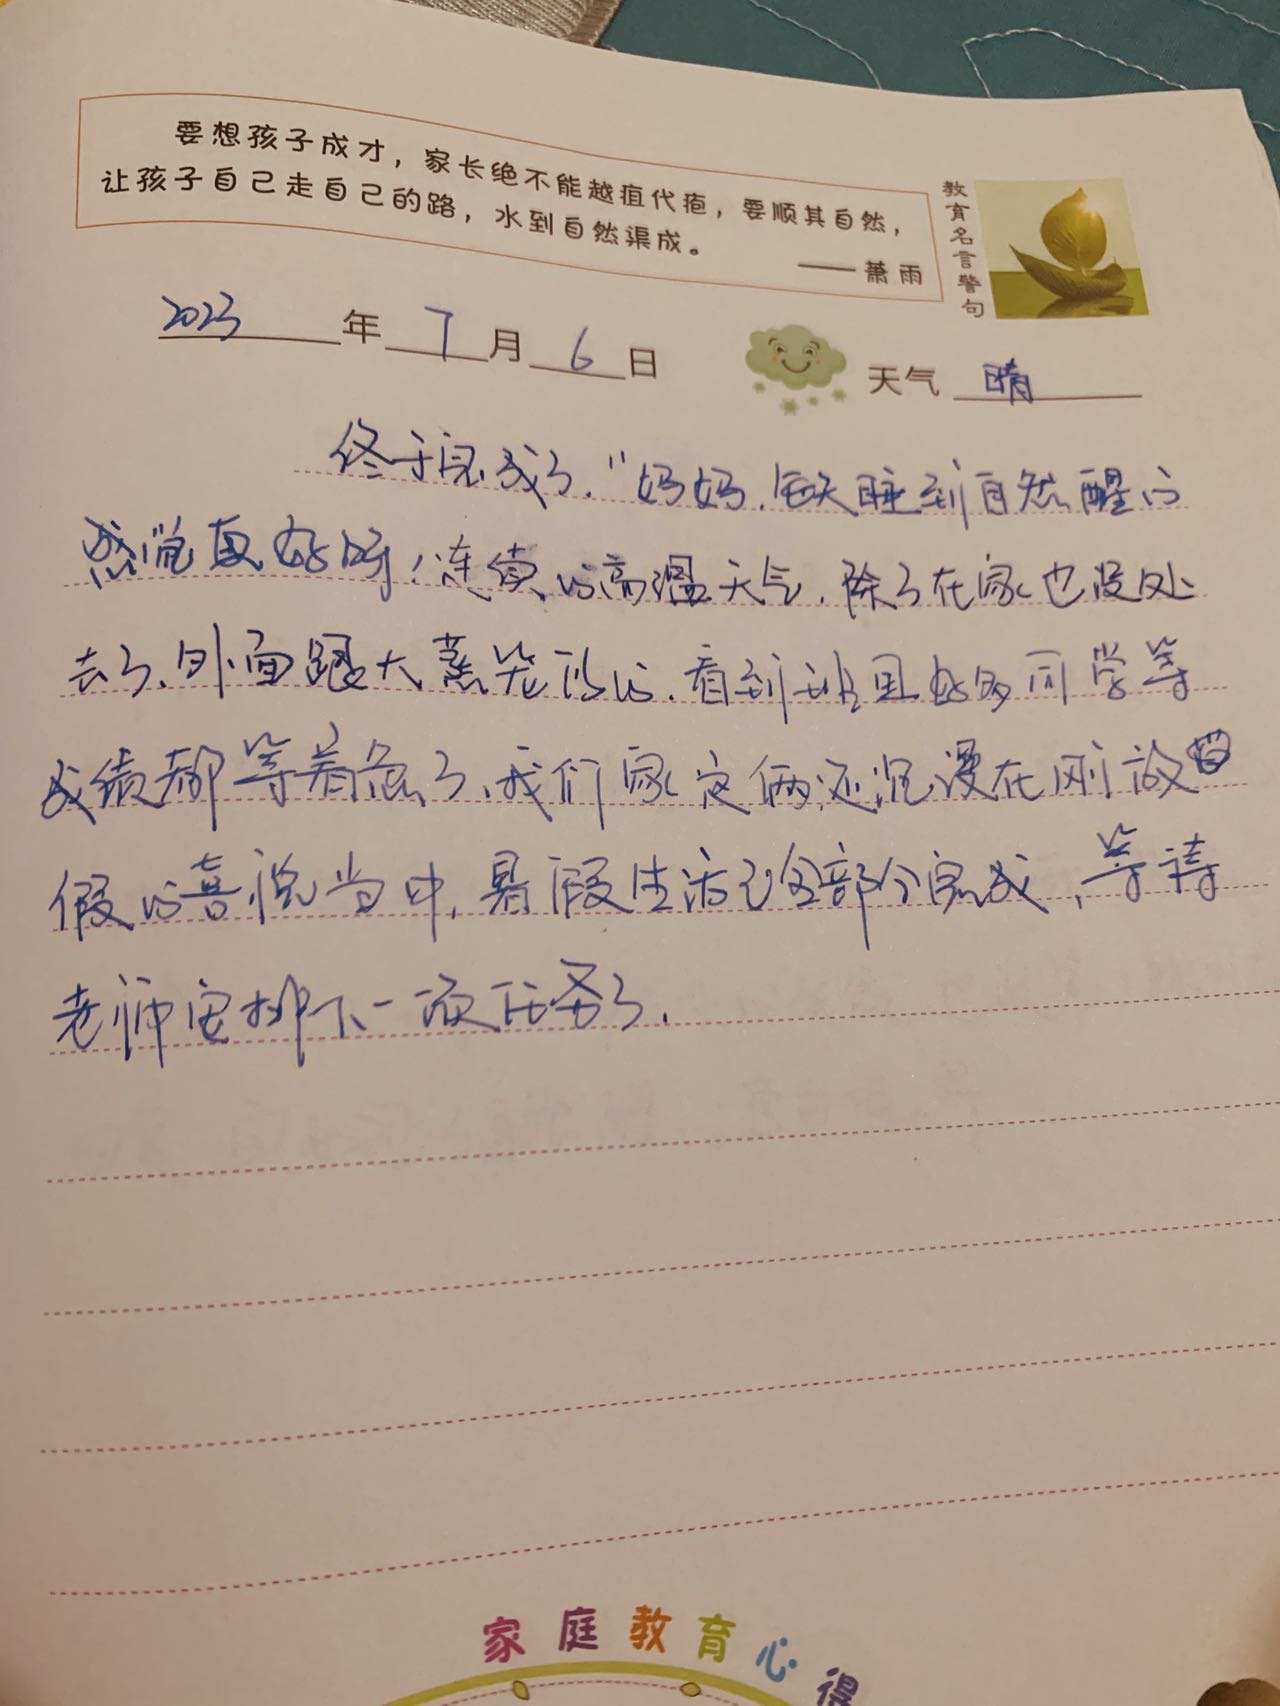 要想孩子成才，家长绝不能越疽代疱，要顺其自然，
让孩子自己走自己的路，水到自然渠成。
——萧雨
教育名言警句
2023年7月6日
天气 晴
终于完成了，“妈妈，每天睡到自然醒的
感觉真好呀！连续的高温天气，除了在家也没处
去了，外面跟大蒸笼似的，看到班里好多同学等
成绩都等着急了，我们家 俩还沉浸在刚放
假的喜悦当中，暑假生活已全部分完成，等待
老师安排下一项任务了.
家庭教育心得